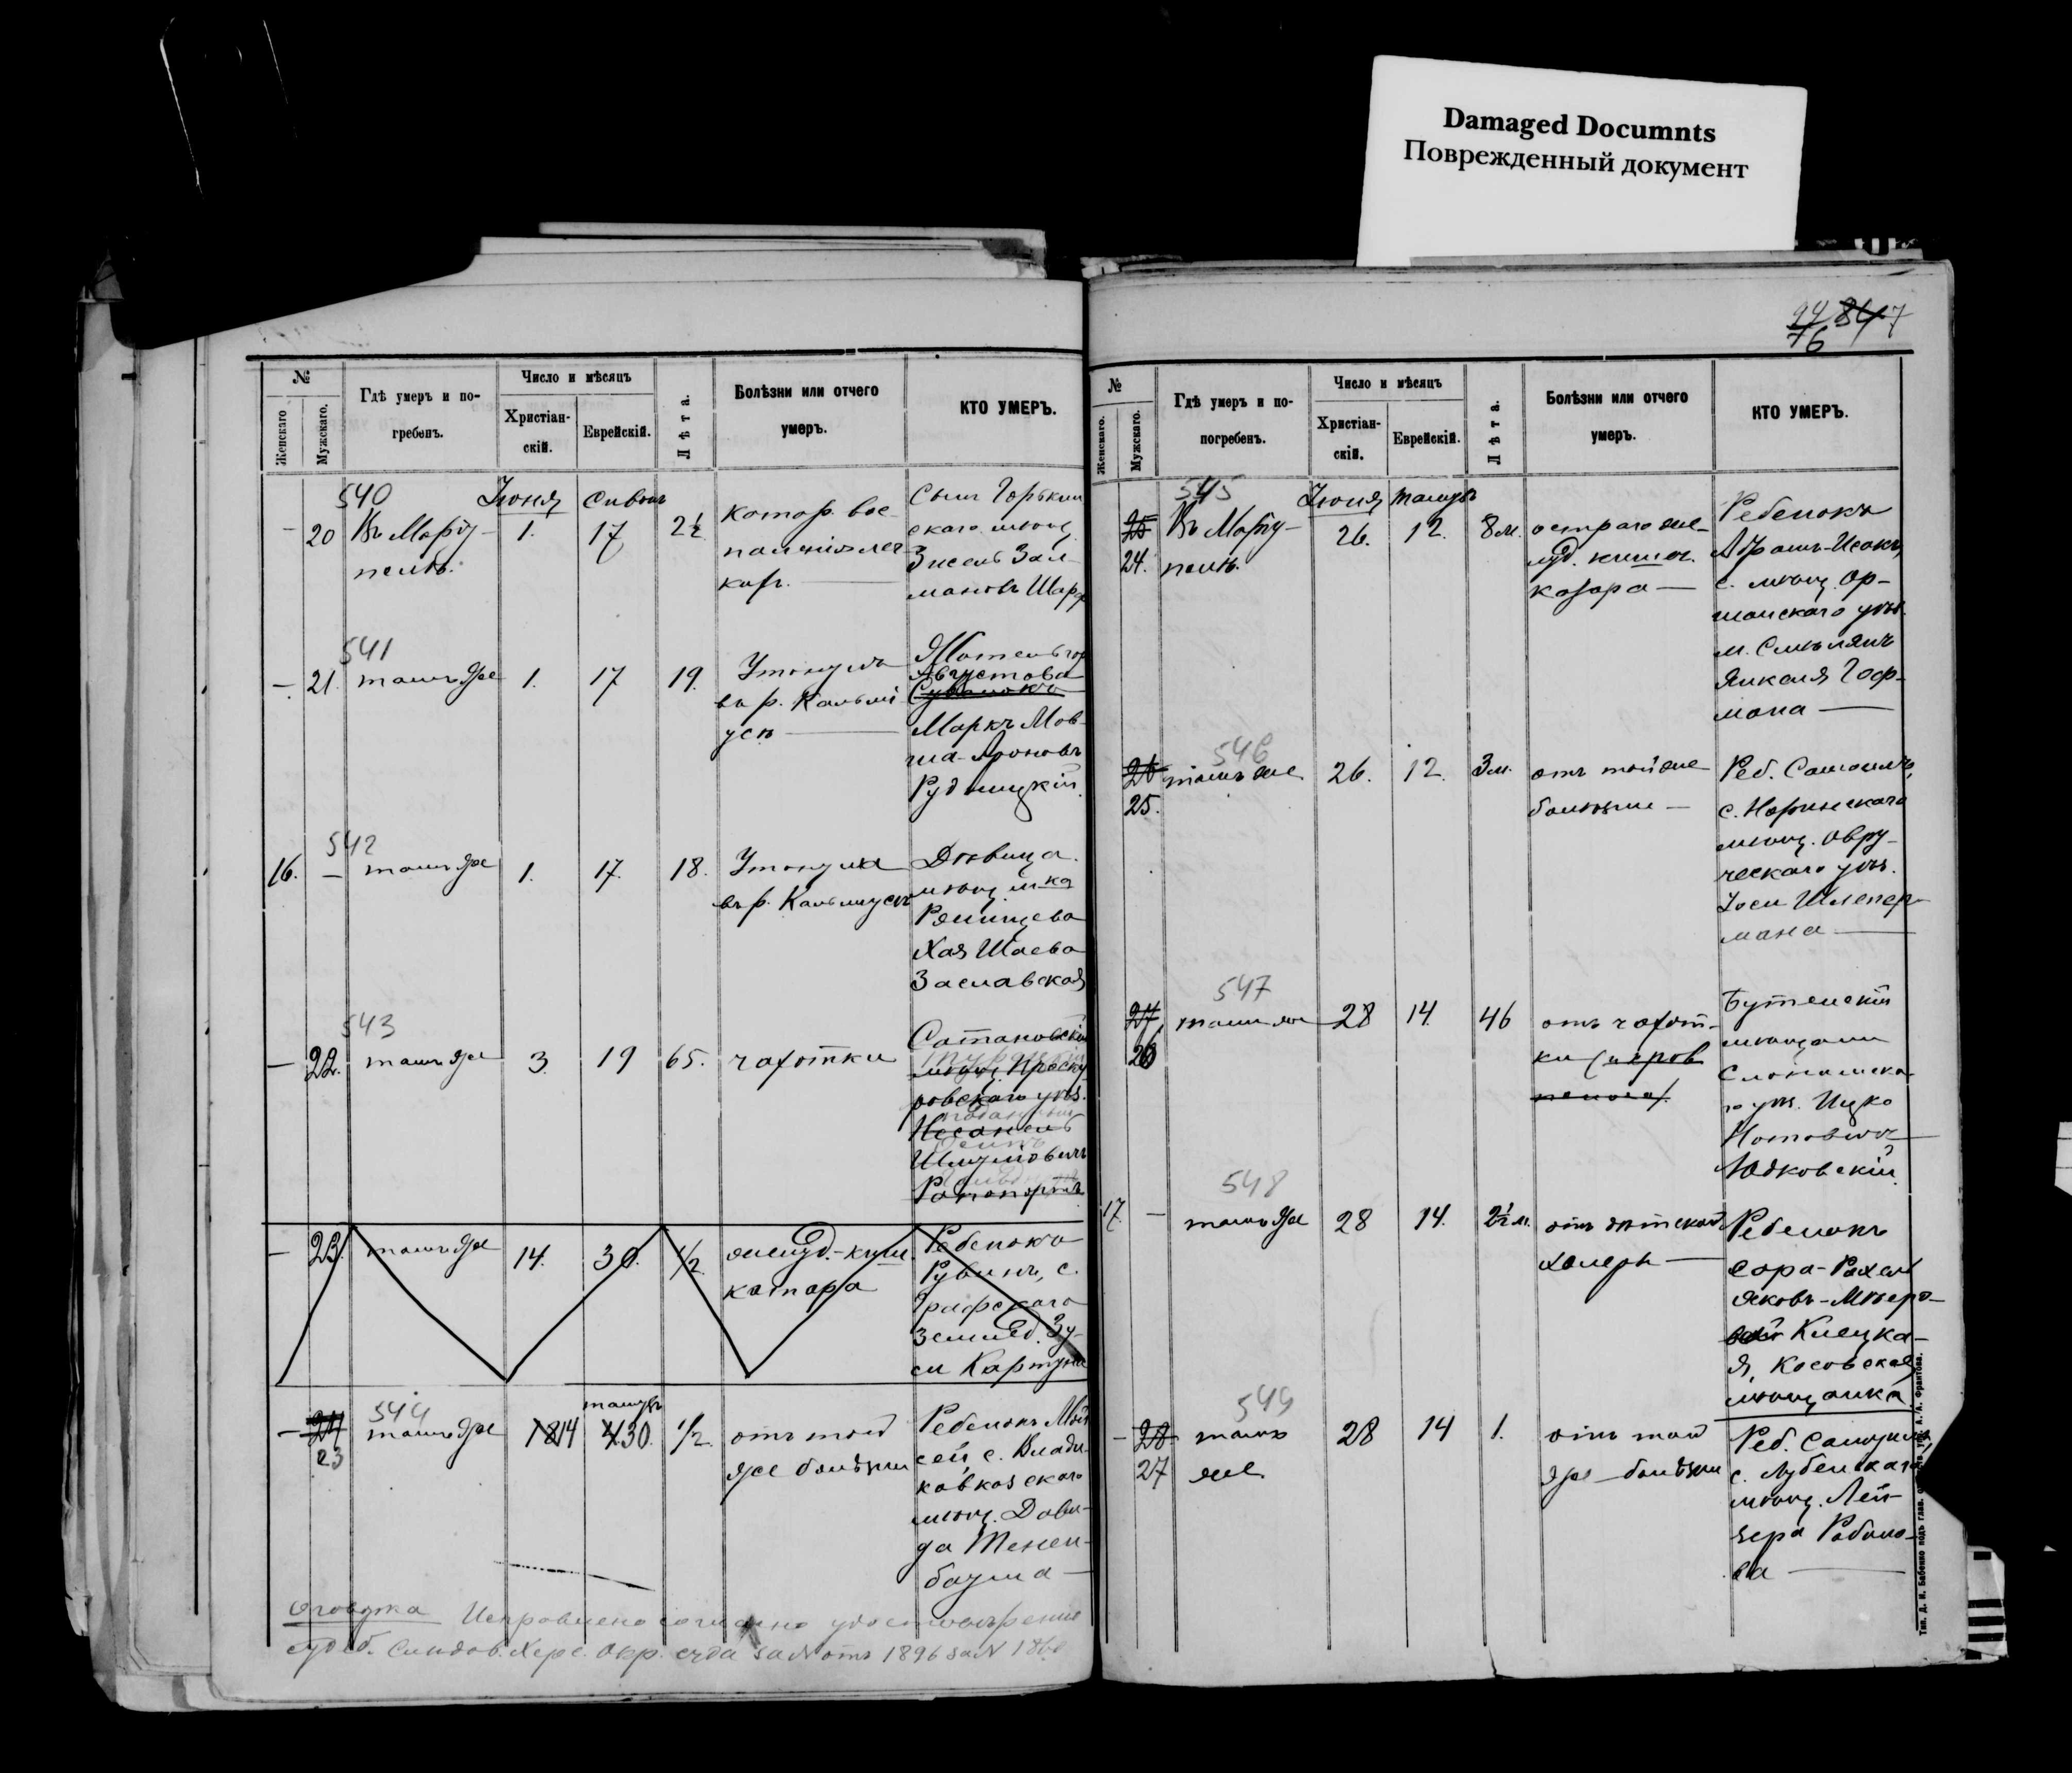 Damaged Documnts
Поврежденный документ
№
Женскаго
Мужскаго.
Гдѣ умеръ и по-
гребенъ.
Число и мѣсяцъ
Христіан-
скій.
Еврейскій.
Лѣта.
Болѣзни или отчего
умеръ.
КТО УМЕРЪ.
540
Іюня
Сивонъ
— 20
Въ Маріу-
полѣ.
1.
17
2½
катар. вос-
паленія лег
ких. —
Сынъ Горькин
скаго мѣщ.
Зисель Зал-
мановъ Шарф
541
— 21.
тамъ же
1.
17
19.
Утонулъ
въ р. Кальмі
усѣ —
Жотель гор
Августова
Сувалокъ
Маркъ Мов-
ша-Ароновъ
Рудницкій.
542
16. —
тамъ же
1.
17.
18.
Утонула
въ р. Кальмусѣ
Дѣвица
мѣщанка
Ряшцева
Хая Шаева
Заславская
543
— 22.
тамъ же
3.
19
65.
чахотки
Сатановскій
мѣщ. Проску
ровскаго уѣз.
Шлумовичъ
Рапопортъ
— 23.
тамъ же
14.
30.
½
желуд.-киш
катара
Ребенокъ
Рувинъ, с.
Графскаго
землед. Зу-
си Картуна
544
— 24
23
тамъ же
18 14
тамузъ
4. 30.
½.
отъ той
же болѣзни
Ребенокъ Мой
сей, с. Влади-
кавказскаго
мѣщ. Дави-
да Тенен-
баума —
Оговорка Исправлено согласно удостовѣренію
судеб. слѣдов. Херс. Окр. суда за № отъ 1896 за №
24 847
76
№
Женскаго.
Мужскаго.
Гдѣ умеръ и по-
погребенъ.
Число и мѣсяцъ
Христіан-
скій.
Еврейскій.
Лѣта.
Болѣзни или отчего
умеръ.
КТО УМЕРЪ.
545
Іюня
тамузъ
25
24.
Въ Маріу-
полѣ.
26.
12.
8 м.
остраго же-
луд. кишеч.
катара —
Ребенокъ
Абрамъ-Исакъ,
с. мѣщ. Ор-
шанскаго уѣз.
м. Смолянъ
Янкеля Гоф-
мана —
546
26
25.
тамъ же
26.
12.
3 м.
отъ той же
болѣзни —
Реб. Самоилъ,
с. Норинскаго
мѣщ. Овру-
ческаго уѣз.
Іоси Шлепер-
мана —
547
27
26
тамъ же
28
14
46
отъ чахот-
ки
Бутенскій
мѣщанин
Слонимска-
го уѣз. Ицко
Нотовичъ
Юдковскій.
548
17. —
тамъ же
28
14.
2½ м.
отъ дѣтской
холеры —
Ребенокъ
Сора-Рахель
Яковъ-Мѣеро-
ва Клецка-
я, Косовская
мѣщанка
549
— 28
27
тамъ
же
28
14
1.
отъ той
же болѣзни
Реб. Самуилъ,
с. Лубенскаго
мѣщ. Лей-
зера Рабино-
ва —
Тип. Д. И. Бабенко подъ глав.
А. Франтова.